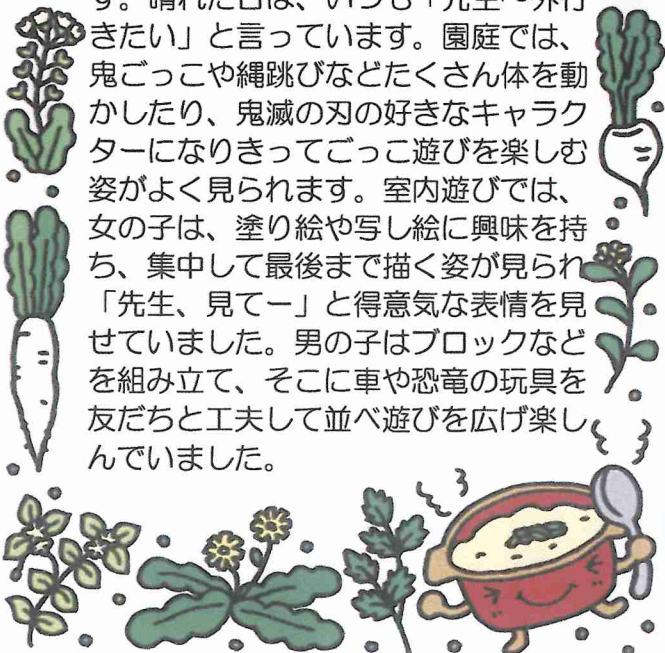 す。晴れた日は、いつも「先生〜外行
きたい」と言っています。園庭では、
鬼ごっこや縄跳びなどたくさん体を動
かしたり、鬼滅の刃の好きなキャラク
ターになりきってごっこ遊びを楽しむ
姿がよく見られます。室内遊びでは、
女の子は、塗り絵や写し絵に興味を持
ち、集中して最後まで描く姿が見られ
「先生、見てー」と得意気な表情を見
せていました。男の子はブロックなど
を組み立て、そこに車や恐竜の玩具を
友だちと工夫して並べ遊びを広げ楽し
んでいました。